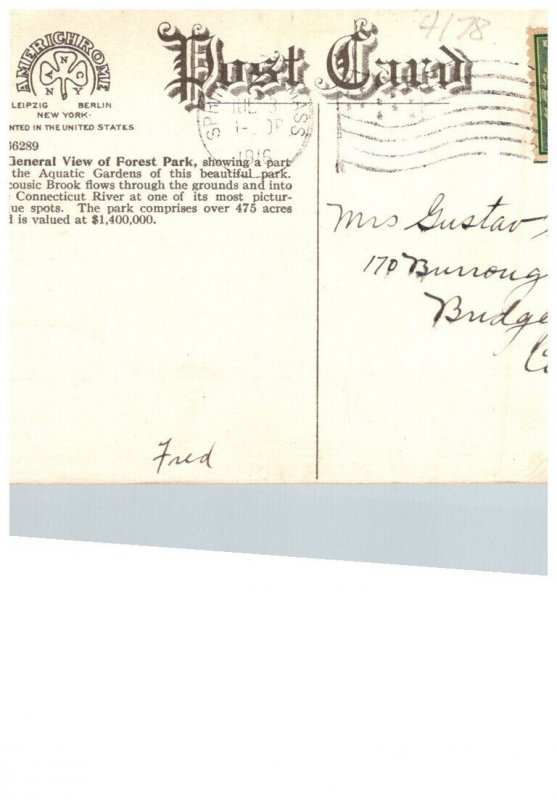 4178
Post Card
AMERICHROME
ANCNY
LEIPZIG BERLIN
NEW YORK
NTED IN THE UNITED STATES
MASS
1916
6289
General View of Forest Park, showing a part
the Aquatic Gardens of this beautiful park.
cousic Brook flows through the grounds and into
Connecticut River at one of its most pictur-
ue spots. The park comprises over 475 acres
d is valued at $1,400,000.
Mrs Gustav
170 Burroug
Bridge
Fred